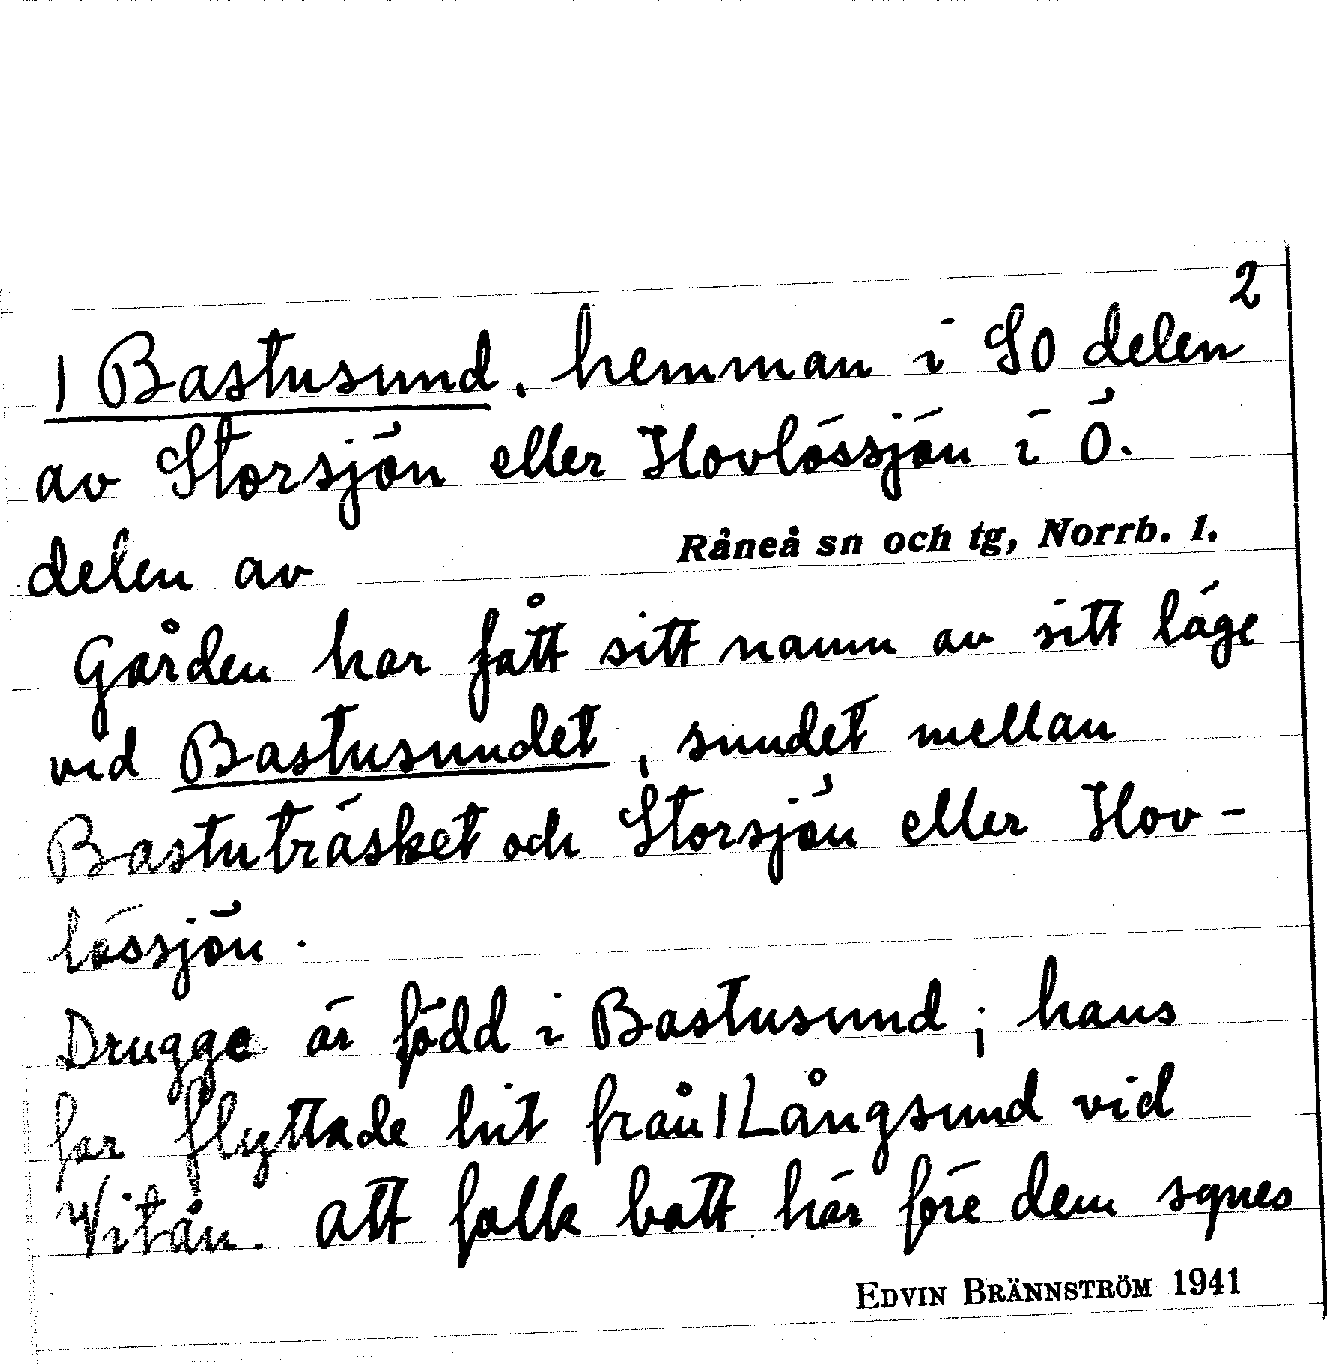 2
1 Bastusund, hemman i SO delen
av Storsjön eller Hovlössjön i Ö.
delen av
Råneå sn och tg, Norrb. l.
Gården har fått sitt namn av sitt läge
vid Bastusundet, sundet mellan
Bastuträsket och Storsjön eller Hov-
lössjön.
Drugge är född i Bastusund; hans
far flyttade hit från 1 Långsund vid
Vitån. Att folk bott här före dem synes
EDVIN BRÄNNSTRÖM 1941